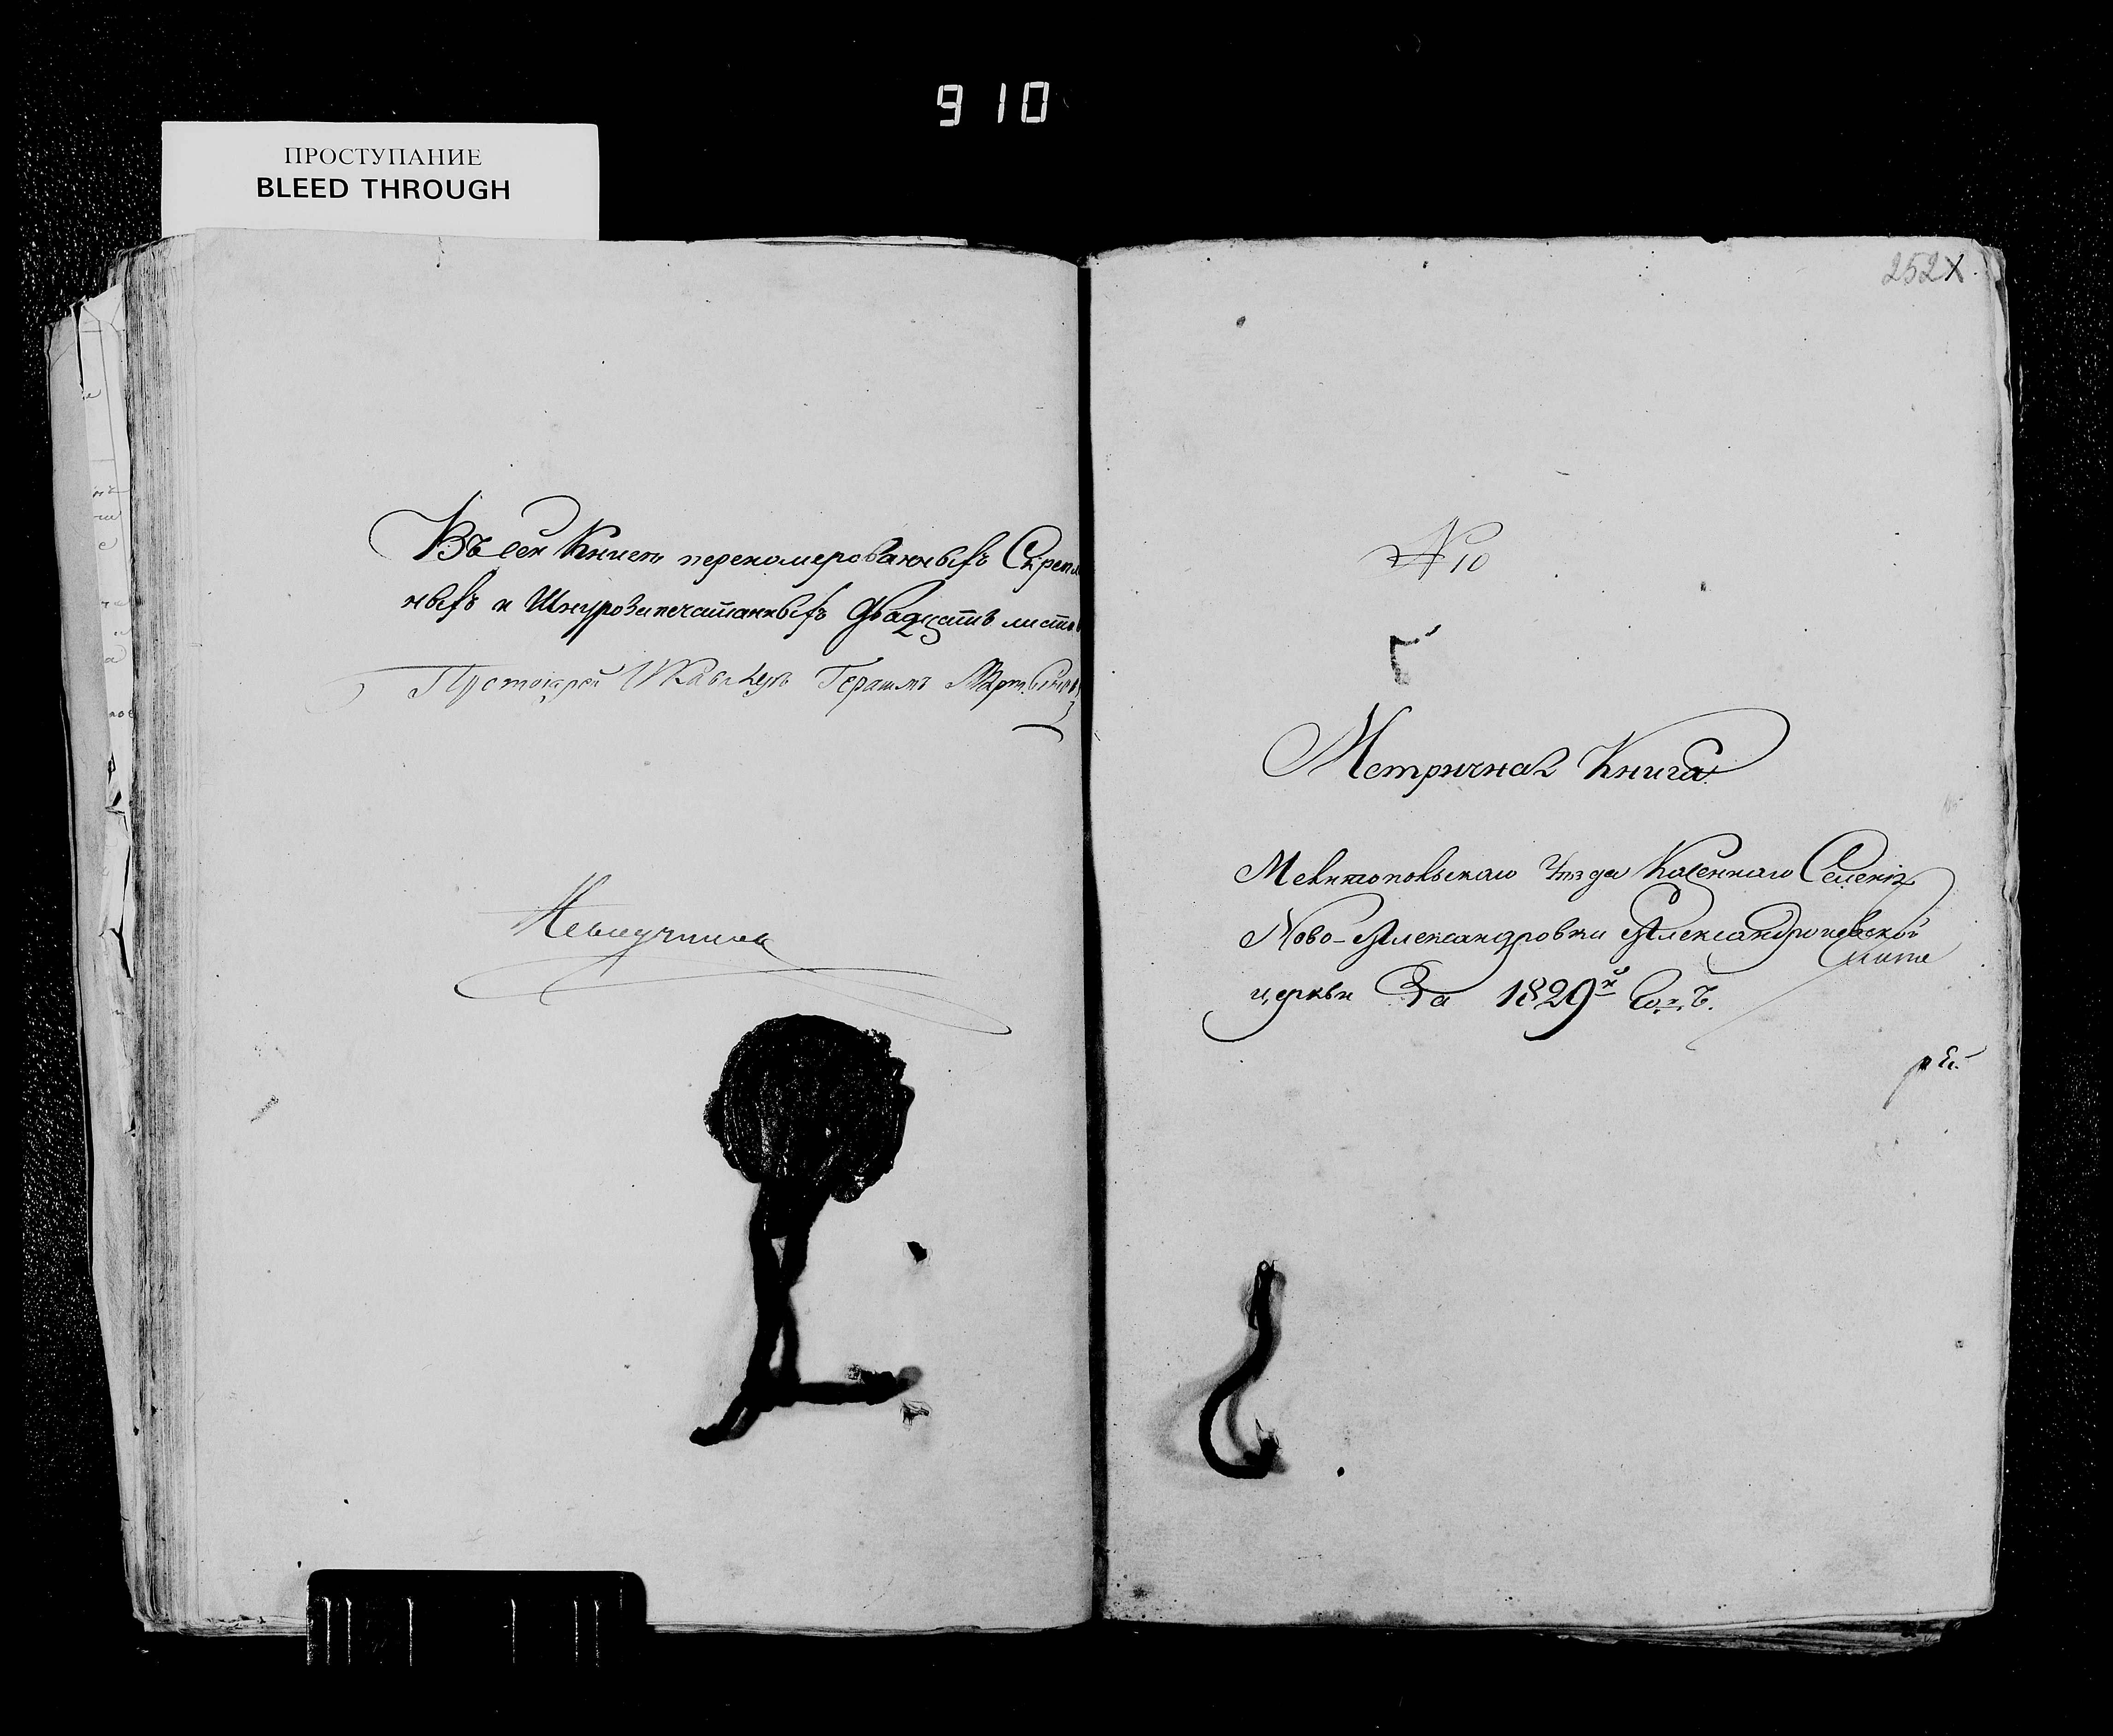 910
ПРОСТУПАНИЕ
BLEED THROUGH
Въ сей Книги перекомерованныхъ Скрепле
ныхъ и Шнурозапечатанныхъ Двадцать листов
Протоіерей Герасимъ
252
№ 10
Метричная Книга
Мелитопольскаго Уѣзда Казеннаго Селенія
Ново-Александровки Александроневской
церкви За 1829й Годъ.